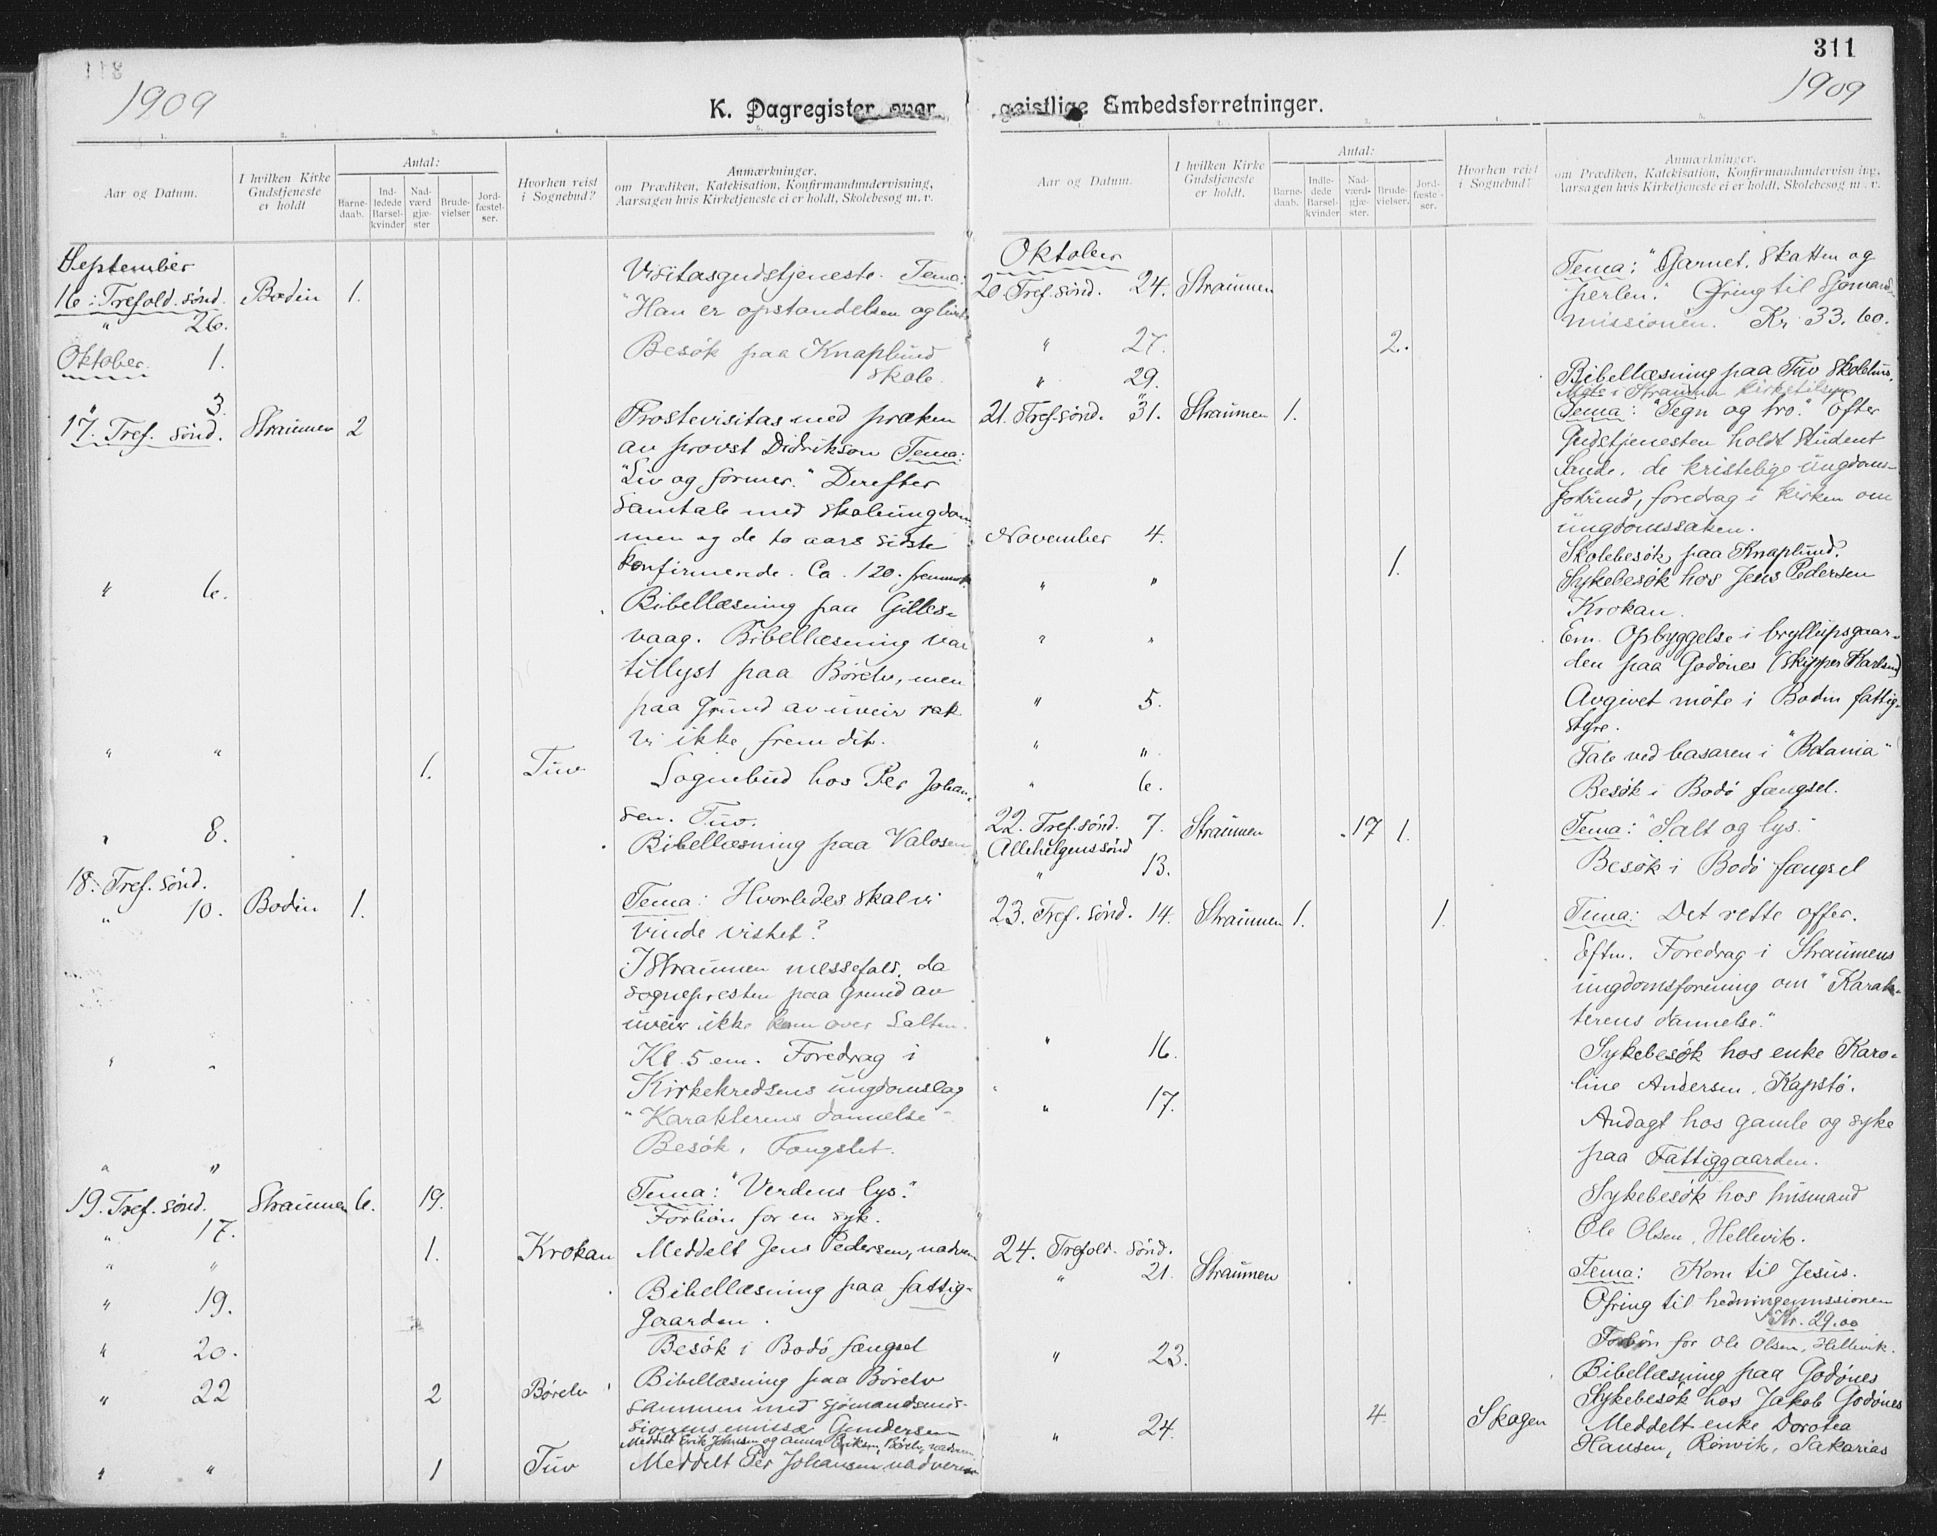 311
1909
1909
K. Dagregister over geistlige Embedsforretninger.
1. 2. 3. 4. 5.
Aar og Datum.
I hvilken Kirke Gudstjeneste er holdt
Antal:
Barne-daab.
Ind-ledede Barsel-kvinder
Nad-værd gjæ-ster
Brude-vielser
Jord-fæstel-ser.
Hvorhen reist i Sognebud?
Anmærkninger.
om Prædiken, Katekisation, Konfirmandundervisning,
Aarsagen hvis Kirketjeneste ei er holdt, Skolebesøg m. v.
September
16. Trefold. sönd. Bodin 1. Visitasgudstjeneste. Tema:
" 26. "Han er opstandelsen og livet.
Oktober 1. Besök paa Knaplund
skole.
" 3.
17. Tref. sönd. Straumen 2 Prostevisitas med præken
av provst Didrikson Tema:
"Liv og former." Derefter
samtale med skoleungdom-
men og de to aars sidste
konfirmerede. Ca. 120. fremmöt.
" 6. Bibellæsning paa Gilles-
vaag. Bibellæsning var
tillyst paa Börelv, men
paa Grund av uveir rak
vi ikke frem dit.
" " 1. Tuv Sognebud hos Per Johan-
sen. Tuv.
" 8. Bibellæsning paa Valosen
18. Tref. sönd.
" 10. Bodin 1. Tema: Hvorledes skal vi
vinde vished?
I Straumen messefald, da
sognepresten paa grund av
uveir ikke kom over Salten.
" " Kl. 5 em. Foredrag i
Kirkekredsens ungdomslag
"Karakterens dannelse"
" " Besök i Fængslet.
19. Tref. sönd. Straumen 6. 19. Tema: "Verdens lys."
" 17. Forbön for en syk.
" " 1. Krokan Meddelt Jens Pedersen, nadveren
" 19. Bibellæsning paa fattig-
gaarden.
" 20. Besök i Bodö fængsel
" 22 2 Börelv Bibellæsning paa Börelv
sammen med sjömandsmis-
sionens emissær Gundersen
Meddelt Erik Johnsen og Anna Eriksen, Börelv, nadveren
" " 1 Tuv Meddelt Per Johansen nadveren
1. 2. 3. 4. 5.
Aar og Datum.
I hvilken Kirke Gudstjeneste er holdt.
Antal:
Barne-daab.
Indle-dede Barsel-kvinder
Nad-værd-gjæ-ster.
Brude-vielser.
Jord-fæste-ser.
Hvorhen reist i Sognebud?
Anmærkninger.
om Prædiken, Katekisation, Konfirmandundervisning,
Aarsagen hvis Kirketjeneste ei er holdt, Skolebesøg m. v.
Oktober
20. Tref. sönd. 24. Straumen Tema: "Garnet, skatten og
perlen." Ofring til Sjömands-
missionen. Kr. 33.60.
" 27. 2.
" 29. Bibellæsning paa Tuv skolehus.
Möte i Straumen kirketilsyn
21. Tref. sönd. 31. Straumen 1. Tema: "Tegn og tro." Efter
Gudstjenesten holdt student
Sande, de kristelige ungdoms-
forbund, foredrag i kirken om
ungdomssaken.
November 4. Skolebesök paa Knaplund.
" " 1. Sykebesök hos Jens Pedersen
Krokan.
" " Em. Opbyggelse i bryllupsgaar-
den paa Godönes (skipper Karlsen)
" 5. Avgivet möte i Bodin fattig-
styre.
" " Tale ved basaren i "Betania"
" 6. Besök i Bodö fængsel.
22. Tref. sönd. 7. Straumen 17 1. Tema: "Salt og lys."
Allehelgenssönd
" 13. Besök i Bodö fængsel
23. Tref. sönd. 14. Straumen 1. 1. Tema: Det rette offer.
Eftm. Foredrag i Straumens
ungdomsforening om "Karak-
terens dannelse."
" 16. Sykebesök hos enke Karo-
line Andersen, Kapstö.
" 17. Andagt hos gamle og syke
paa Fattiggaarden.
Sykebesök hos husmand
Ole Olsen, Hellevik.
24. Trefold. sönd.
" 21. Straumen Tema: Kom til Jesus.
Ofring til hedningemissionen
Kr. 29.00
Forbön for Ole Olsen, Hellevik.
" 23. Bibellæsning paa Godönes
Sykebesök hos Jakob Godönes
" 24. 4. Skagen Meddelt enke Dorotea
Hansen, Rönvik, Sakarias